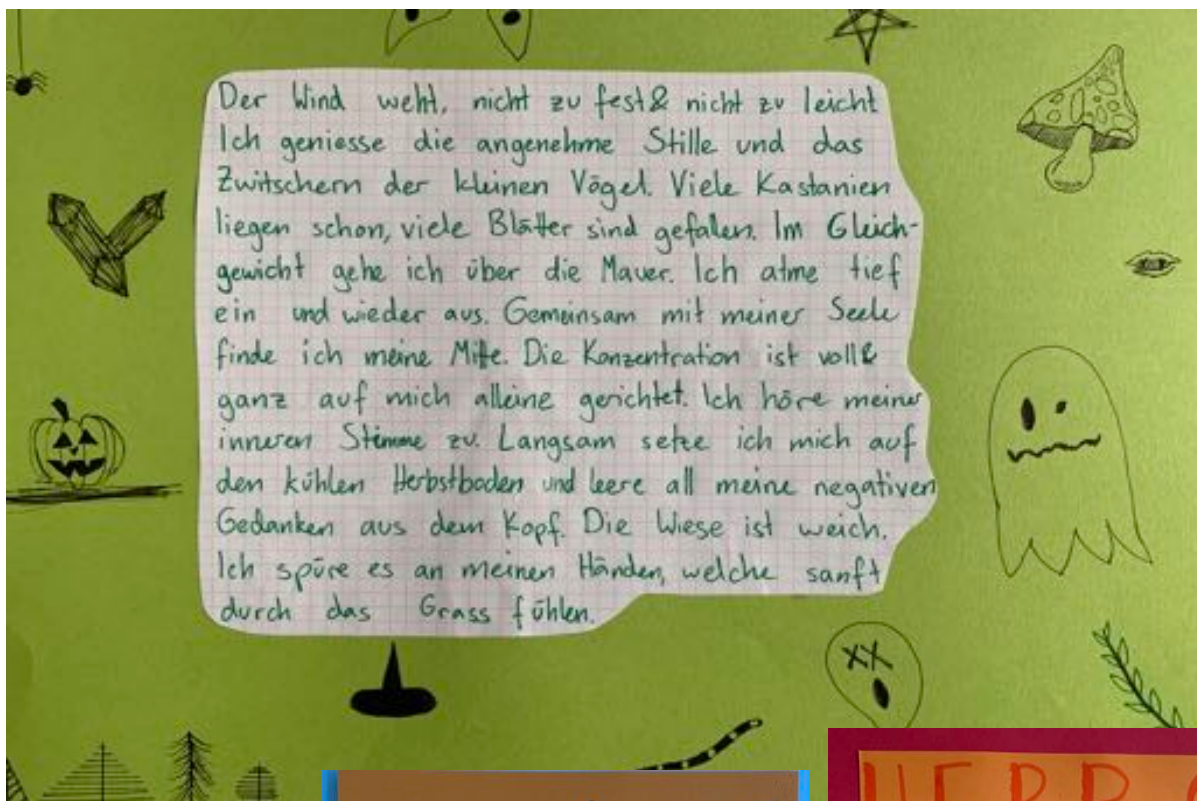 Der Wind weht, nicht zu fest & nicht zu leicht
Ich geniesse die angenehme Stille und das
Zwitschern der kleinen Vögel. Viele Kastanien
liegen schon, viele Blätter sind gefallen. Im Gleich-
gewicht gehe ich über die Mauer. Ich atme tief
ein und wieder aus. Gemeinsam mit meiner Seele
finde ich meine Mitte. Die Konzentration ist voll &
ganz auf mich alleine gerichtet. Ich höre meiner
inneren Stimme zu. Langsam setze ich mich auf
den kühlen Herbstboden und leere all meine negativen
Gedanken aus dem Kopf. Die Wiese ist weich.
Ich spüre es an meinen Händen, welche sanft
durch das Grass fühlen.